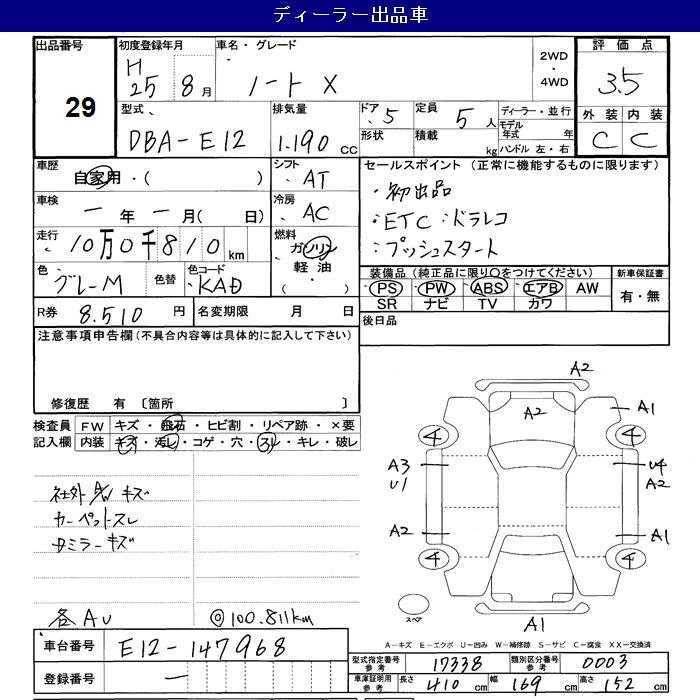 ディーラー出品車
出品番号 29
初度登録年月 H25 8月
車名・グレード ノート X
2WD・4WD
評価点 3.5
外装 内装
C C
型式 DBA-E12
排気量 1.190 cc
ドア 5
形状
定員 5人
積載 kg
ディーラー・並行
モデル年式 年
ハンドル 左・右
車歴 自家用・( )
シフト AT
車検 - 年 - 月( 日)
冷房 AC
走行 10万0千810km
燃料 ガソリン 軽油・( )
色 グレーM
色替
色コード KAD
R券 8.510 円
名変期限 月 日
セールスポイント(正常に機能するものに限ります)
・初出品
・ETC・ドラレコ
・プッシュスタート
装備品(純正品に限り○をつけてください)
PS PW ABS エアB AW
SR ナビ TV カワ
新車保証書 有・無
後日品
注意事項申告欄(不具合内容等は具体的に記入して下さい)
修復歴 有 〔箇所 〕
検査員記入欄
FW キズ・飛石・ヒビ割・リペア跡・×要
内装 キズ・汚レ・コゲ・穴・スレ・キレ・破レ
社外A/Wキズ
カーペットスレ
ミラーキズ
各AU ◎100.811km
車台番号 E12-147968
登録番号 -
A2
A2 A1
4 4
A3 U4
U1 A2
A2 A1
4 4
スペア A1
A-キズ E-エクボ U-凹み W-補修跡 S-サビ C-腐食 XX-交換済
型式指定番号 参考 17338
類別区分番号 参考 0003
車庫証明用 参考 長さ 410 cm 幅 169 cm 高さ 152 cm